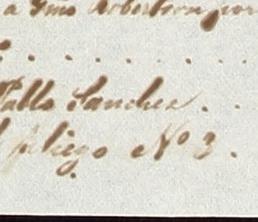 a Gmo Robertson por
. . . . . .
Pablo Sanchez . .
pliego No 3.